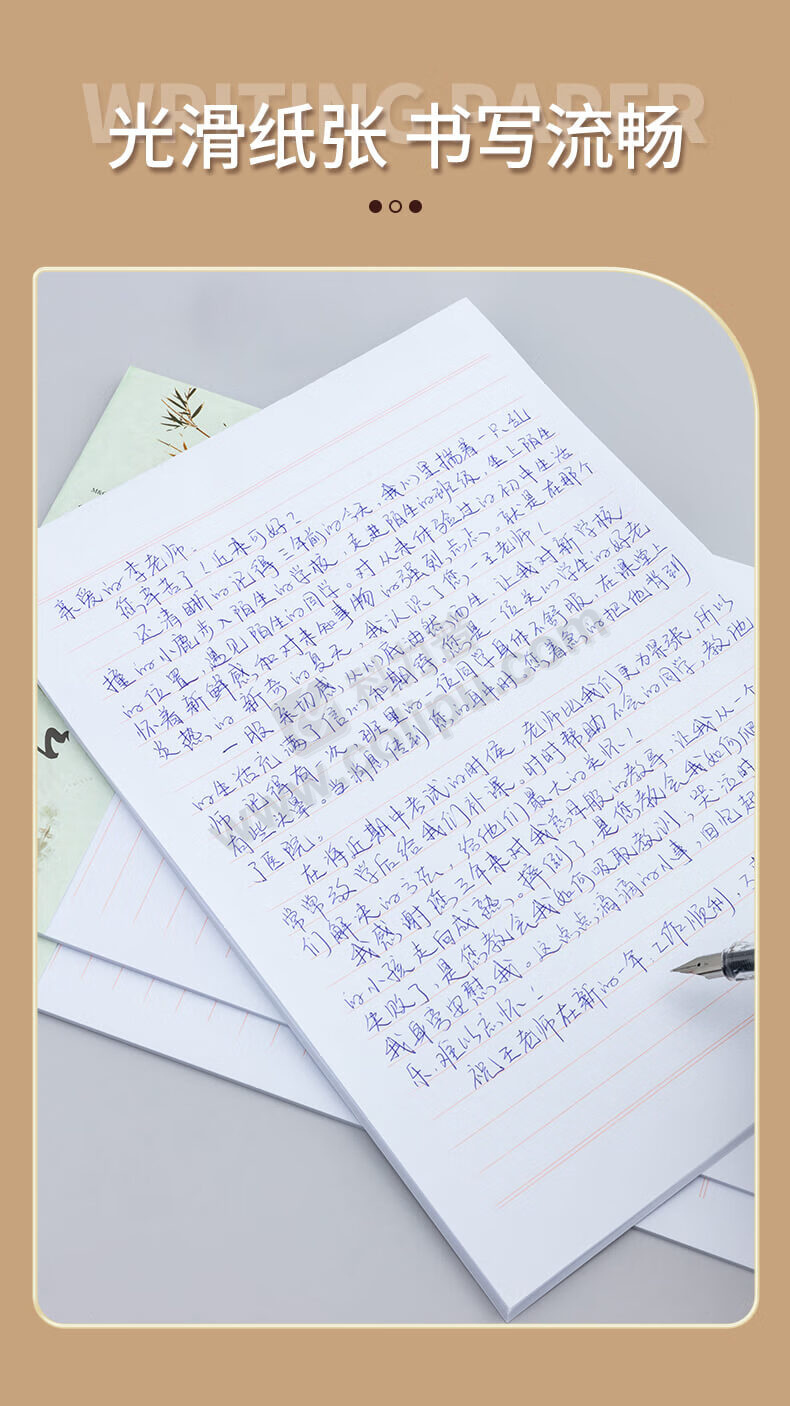 WRITING PAPER
光滑纸张 书写流畅
亲爱的李老师:
您辛苦了!近来可好?
还清晰的记得三年前的今天,我们里揣着一只乱
撞的小鹿步入陌生的学校,走进陌生的班级,坐上陌生
的位置,遇见陌生的同学。对从未体验过的初中生活
怀着新鲜感和对未知事物的强烈点点。就是在那个
炎热的,新奇的夏天,我认识了您,—王老师!
一股亲切感,从心底油然而生,让我对新学校
的生活充满了信心和期待。您是一位关心学生的好老
师,记得有一次,班里的一位同学身体不舒服,在课堂上
了医院。
在将近期中考试的时候,老师比我们更为紧张,所以
常常放学后给我们补课。时时帮助不会的同学,教他
们解决的方法,给他们最大的关怀!
我感谢您三年来对我的教导,让我从一个
的小孩走向成熟。摔倒了,是您教会我如何爬
失败了,是您教会我如何吸取教训,哭泣时
我身旁安慰我。这点点滴滴的小事,回忆起
乐,难以忘怀!
祝王老师在新的一年,工作顺利,
www.colipu.com